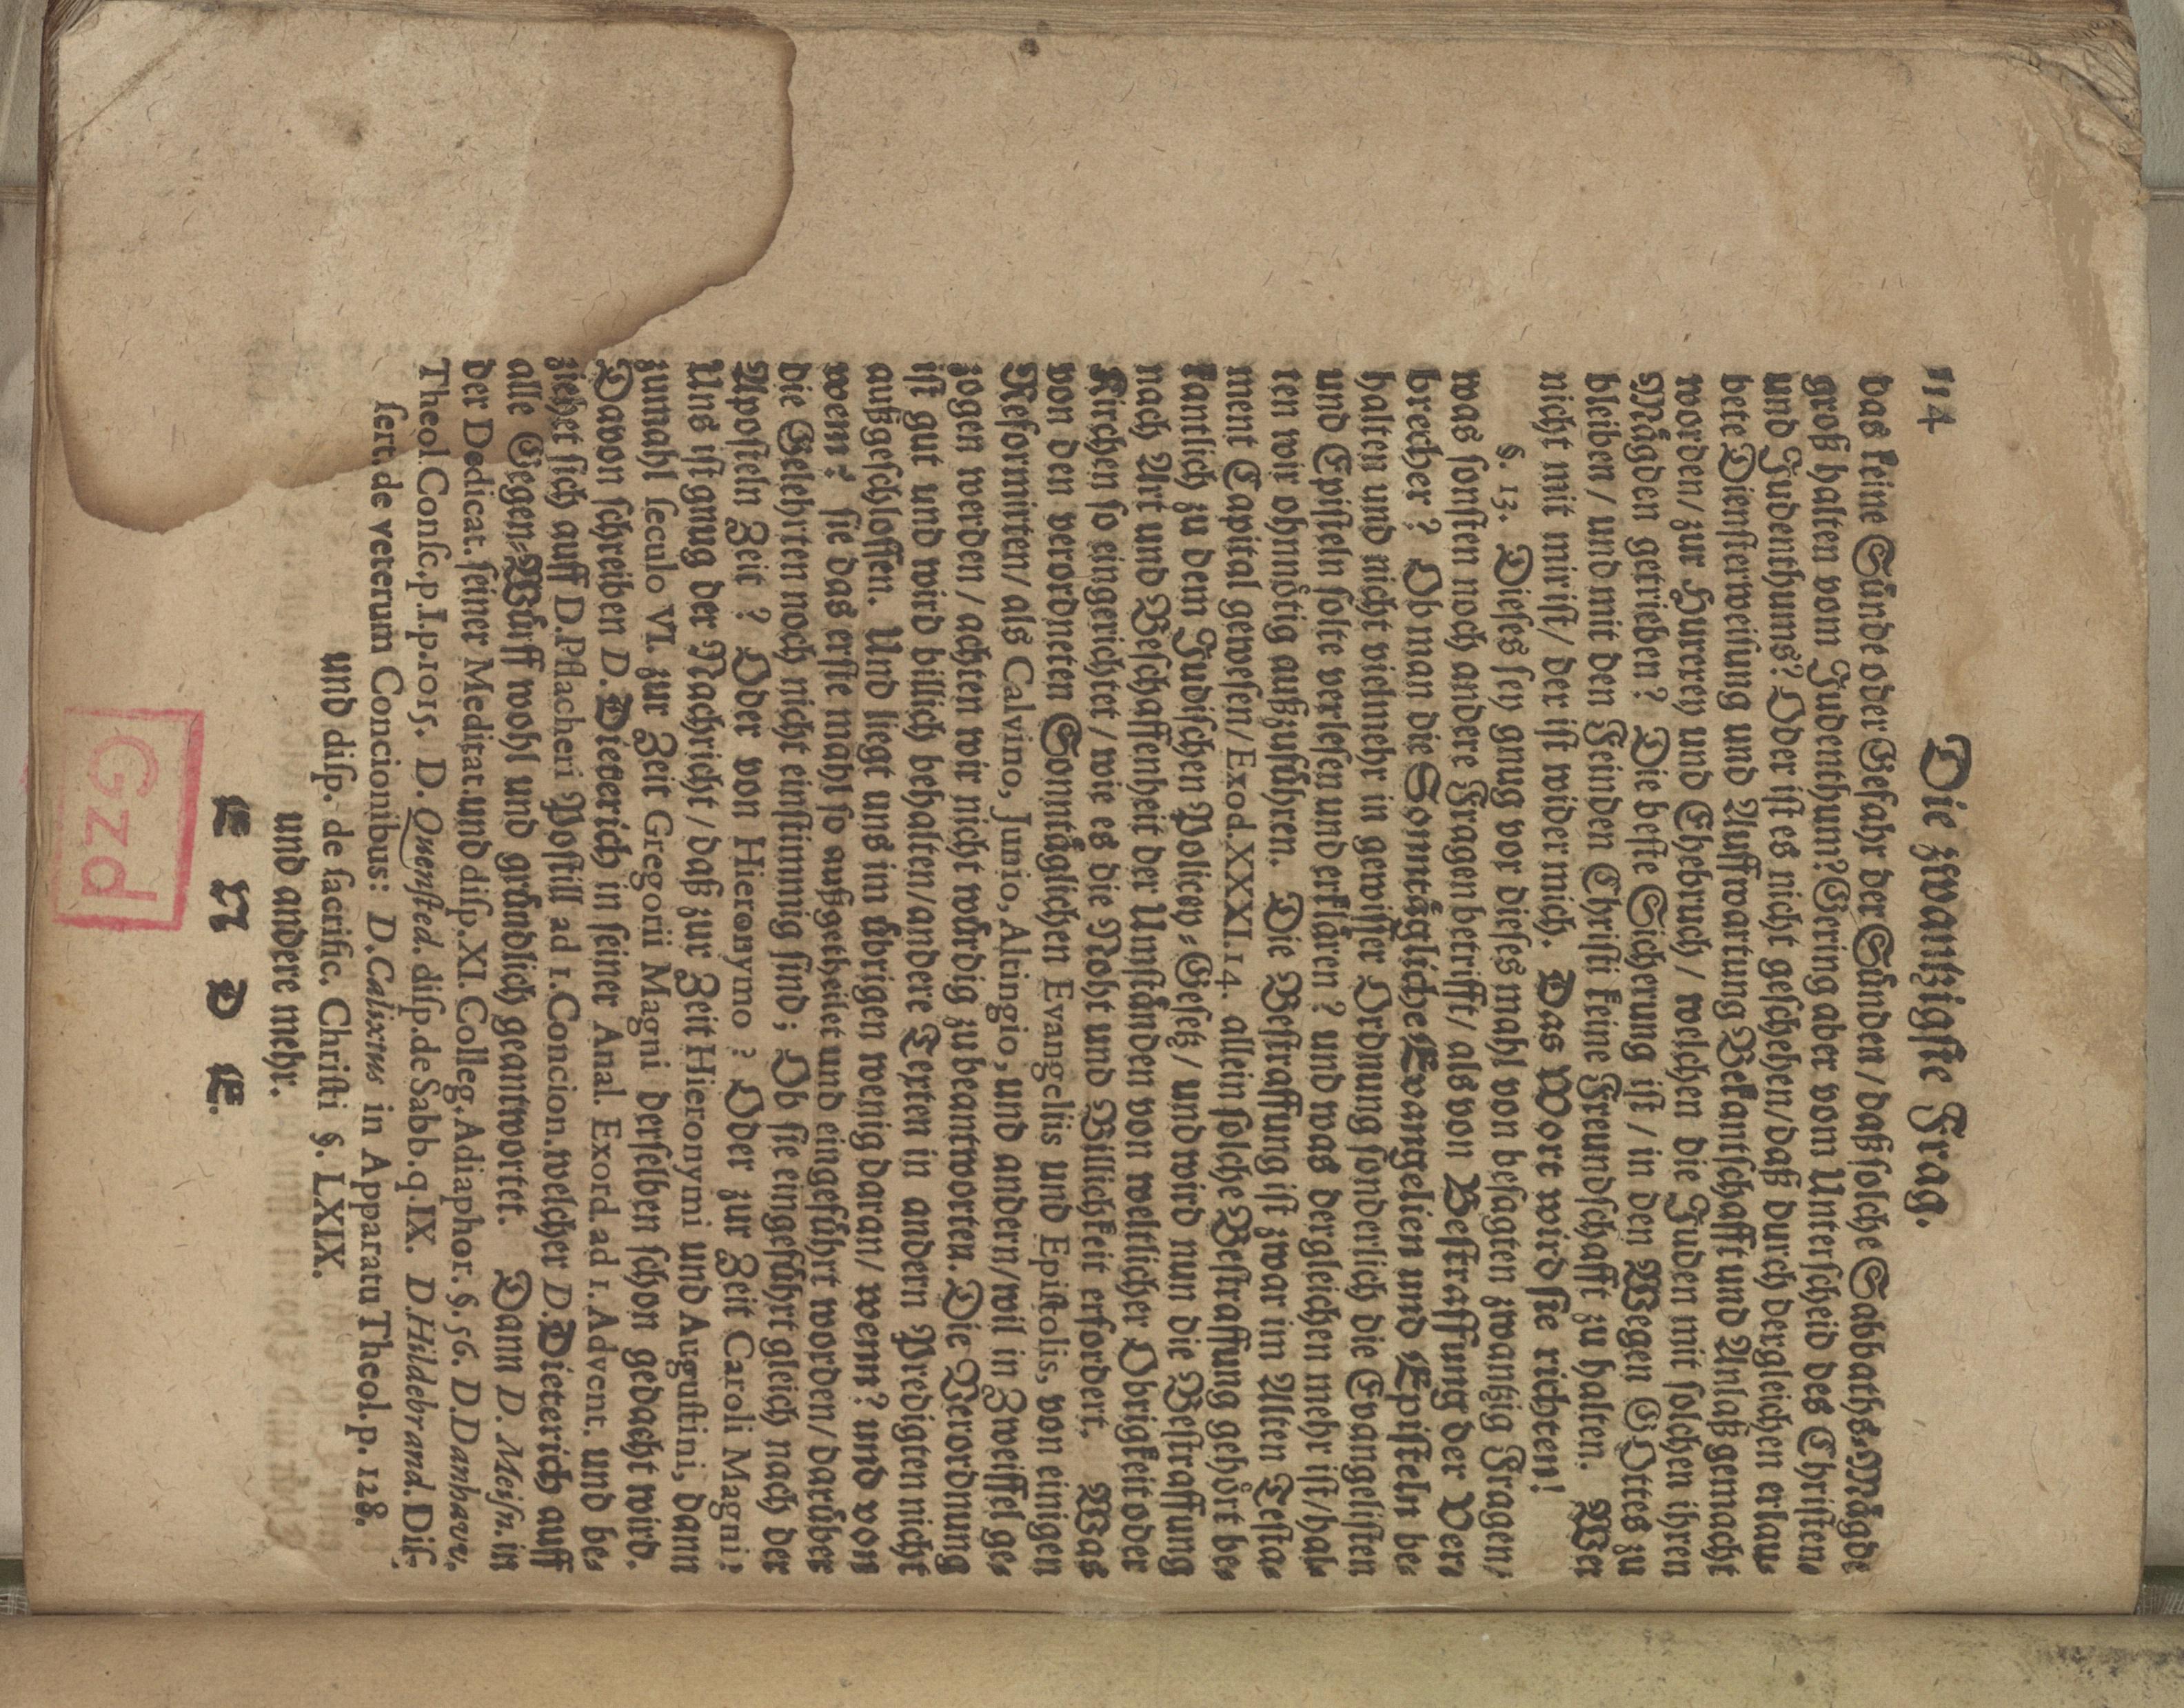 114 Die zwantzigste Frag.
das keine Sünde oder Gefahr der Sünden / daß solche Sabbaths-Mägde
groß halten vom Judenthum? Gering aber vom Unterscheid des Christen-
und Judenthums? Oder ist es nicht geschehen/ daß durch dergleichen erlau-
bete Diensterweisung und Auffwartung Bekantschafft und Anlaß gemacht
worden/ zur Hurerey und Ehebruch/ welchen die Juden mit solchen ihren
Mägden getrieben? Die beste Sicherung ist / in den Wegen GOttes zu
bleiben/ und mit den Feinden Christi keine Freundschafft zu halten. Wer
nicht mit mir ist/ der ist wider mich. Das Wort wird sie richten!
§. 13. Dieses sey gnug vor dieses mahl von besagten zwantzig Fragen/
was sonsten noch andere Fragen betrifft/ als von Bestraffung der Ver-
brecher? Ob man die Sonntägliche Evangelien und Episteln be-
halten und nicht vielmehr in gewisser Ordnung sonderlich die Evangelisten
und Episteln solte verlesen und erklären? und was dergleichen mehr ist/ hal-
ten wir ohnnötig außzuführen. Die Bestraffung ist zwar im Alten Testa-
ment Capital gewesen/ Exod. XXXI. 14. allein solche Bestraffung gehört be-
kantlich zu dem Jüdischen Policey-Gesetz/ und wird nun die Bestraffung
nach Art und Beschaffenheit der Umständen von weltlicher Obrigkeit oder
Kirchen so eingerichtet / wie es die Noht und Billichkeit erfordert. Was
von den verordneten Sonntäglichen Evangeliis und Epistolis, von einigen
Reformirten/ als Calvino, Junio, Altingio, und andern/ wil in Zweiffel ge-
zogen werden / achten wir nicht würdig zu beantworten. Die Verordnung
ist gut und wird billich behalten/ andere Texten in andern Predigten nicht
außgeschlossen. Und liegt uns im übrigen wenig daran/ wenn? und von
wem? sie das erste mahl so außgetheilet und eingeführt worden/ darüber
die Gelehrten noch nicht einstimmig sind; Ob sie eingeführt gleich nach der
Aposteln Zeit ? Oder von Hieronymo ? Oder zur Zeit Caroli Magni?
Uns ist gnug der Nachricht / daß zur Zeit Hieronymi und Augustini, dann
zumahl seculo VI. zur Zeit Gregorii Magni derselben schon gedacht wird.
Davon schreiben D. Dieterich in seiner Anal. Exord. ad 1. Advent. und be-
ziehet sich auff D. Pflacheri Postill ad 1. Concion. welcher D. Dieterich auff
alle Gegen-Würff wohl und gründlich geantwortet. Dann D. Meisn. in
der Dedicat. seiner Meditat. und disp. XI. Colleg. Adiaphor. §. 56. D. Danhavv.
Theol. Consc. p. I. p. 1015. D. Quensted. disp. de Sabb. q. IX. D. Hildebrand. Dis-
sert. de veterum Concionibus: D. Calixtus in Apparatu Theol. p. 128.
und disp. de sacrific. Christi §. LXIX.
und andere mehr.
E N D E.
Gzd